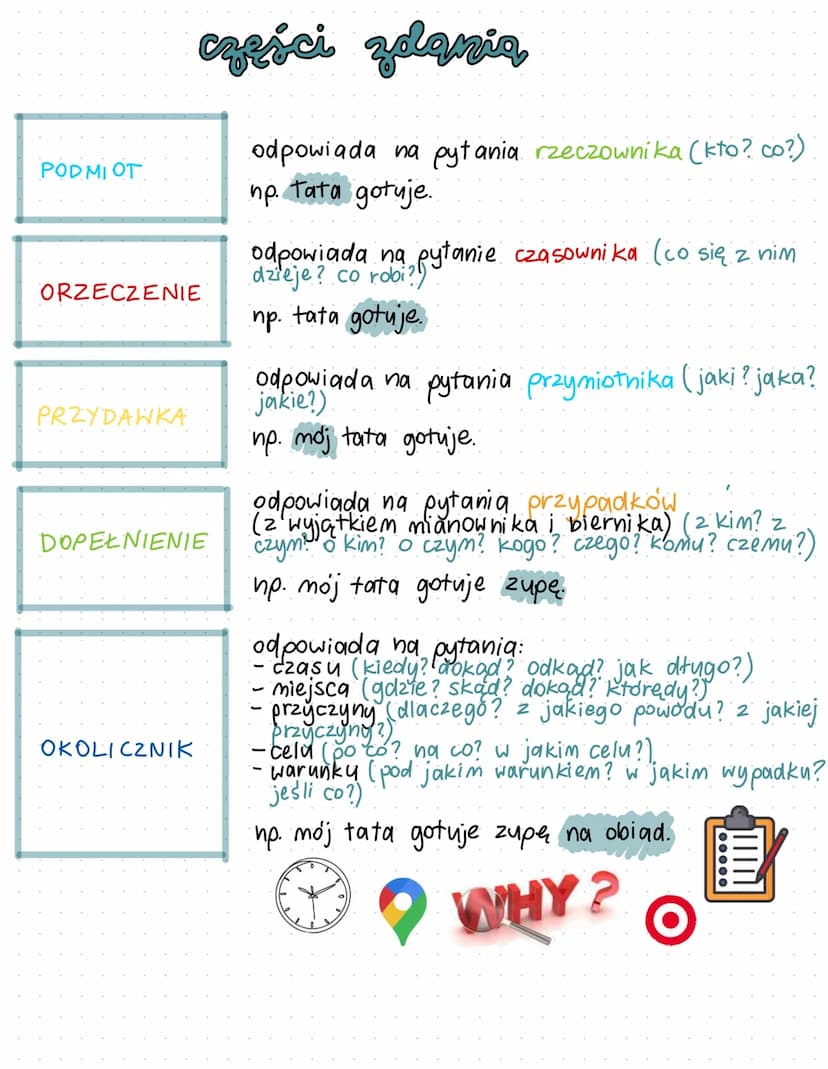 części zdania
PODMIOT
odpowiada na pytania rzeczownika (kto? co?)
np. tata gotuje.
ORZECZENIE
odpowiada na pytanie czasownika (co się z nim
dzieje? co robi?)
np. tata gotuje.
PRZYDAWKA
odpowiada na pytania przymiotnika (jaki? jaka?
jakie?)
np. mój tata gotuje.
DOPEŁNIENIE
odpowiada na pytania przypadków
(z wyjątkiem mianownika i biernika) (z kim? z
czym? o kim? o czym? kogo? czego? komu? czemu?)
np. mój tata gotuje zupę.
OKOLICZNIK
odpowiada na pytania:
- czasu (kiedy? dokąd? odkąd? jak długo?)
- miejsca (gdzie? skąd? dokąd? którędy?)
- przyczyny (dlaczego? z jakiego powodu? z jakiej
przyczyny?)
- celu (po co? na co? w jakim celu?)
- warunku (pod jakim warunkiem? w jakim wypadku?
jeśli co?)
np. mój tata gotuje zupę na obiad.
WHY?